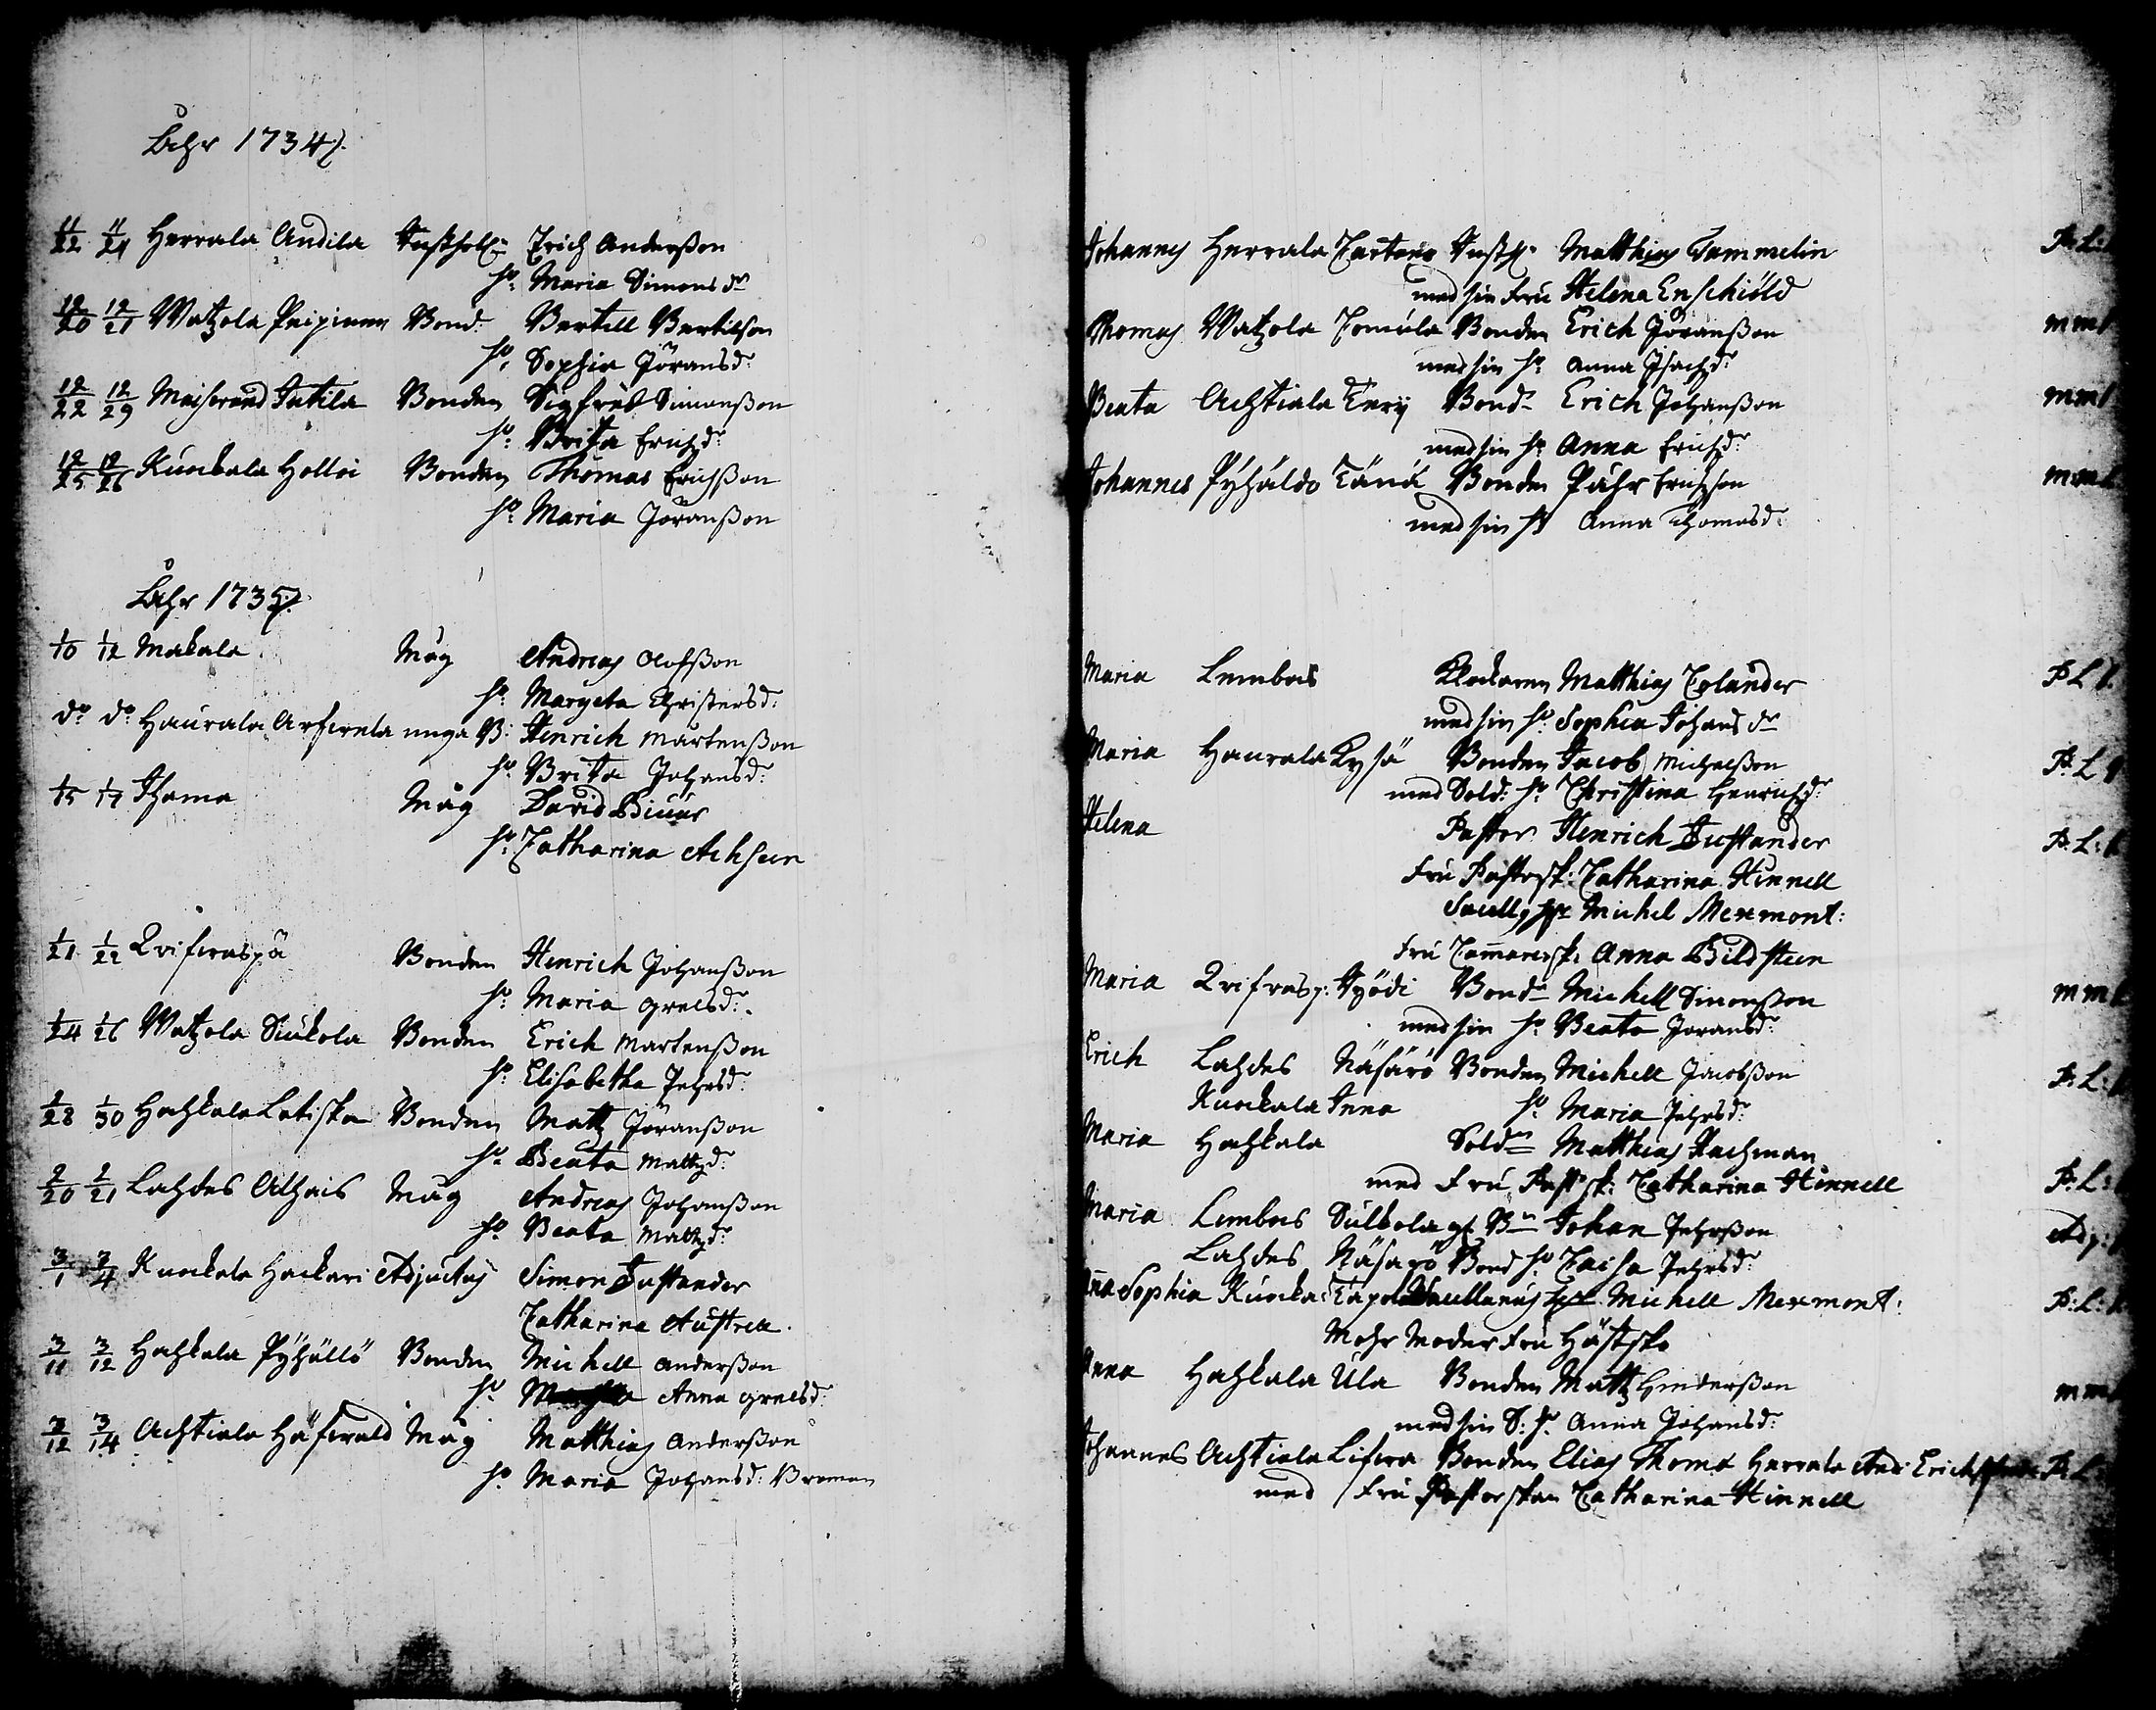 Åhr 1734
11/22 11/24 Herrala Andila Inspholl: Erich Anderßon
h: Maria Simonsdr
12/20 12/21 Watzola Peipinen Bond: Bertill Bertilson
h: Sophia Jöransdr
12/22 12/29 Intila Bonden Sigfred Simonßon
h: Brita Erichzdr
12/25 12/26 Kuockala Holloi Bonden Thomas Erichßon
h: Maria Jöranßon
Åhr 1735
1/10 1/12 Makala Måg Andreas Olofßon
h: Margeta Christersd:
do do Haurala unga B: Henrich Martenßon
h: Brita Johansd:
1/15 1/17 Måg David
h: Catharina
1/21 1/22 Qvifwaspä Bonden Henrich Johanßon
h: Maria Grelsd:
1/24 1/26 Watzola Siukola Bonden Erich Martenßon
h: Elisabetha Pehrsd:
1/28 1/30 Hahkala Latiska Bonden Matz Jöranßon
h: Beata Mattzd:
2/20 2/21 Lahdes Alhais Måg Andreas Johanßon
h: Beata Mattzd:
3/1 3/4 Kuockala Hackari Adjuctus Simon Justander
Catharina
3/11 3/12 Hahkala Pyhällö Bonden Michell Anderßon
h: Anna Grelsd:
3/12 3/14 Achtiala Måg Matthias Anderßon
h: Maria Johansd: Broman
Johannes Herrala Cartano Matthias Tammelin
med sin Fru Helena Enschiöld
Thomas Watzola Tomula Bonden Erich Jöranßon
med sin h: Anna Isachzdr
Beata Achtiala Bond: Erich Johanßon
med sin h: Anna Erichzdr
Johannes Pyhäldö Bonden Pähr Erichson
med sin h: Anna Thomasd:
Maria Lembois Klockaren Matthias Tolander
med sin h: Sophia Johansdr
Maria Haurala Kysä Bonden Jacob Michelßon
med Sold: h: Christina Henrichzd:
Helena Pastor Henrich Justander
Fru Pastorsk: Catharina Hinnell
Michel Mexmont:
Fru Anna Bildsteen
Maria Qvifvasp: Hyödi Bonde Michell Simonßon
med sin h: Beata Joransd:
Erich Lahdes Näsärö Bonden Michell Jacobßon
Kuockala Inna h: Maria Pehrsd:
Maria Hahkala Soldn Matthias Rachman
med Fru Past.sk: Catharina Hinnell
Maria Lembois Sulkola Johan Pehrßon
Lahdes Näsärö Bond h: Caisa Pehrsd:
Anna Sophia Kuocka: Michell Mexmont:
Mohr Moder Fru
Anna Hahkala Ula Bonden Matz Hinderßon
med sin S: h: Anna Johansd:
Johannes Achtiala Bonden Elias Thoma Herrala Erich
med Fru Pastorskan Catharina Hinnell